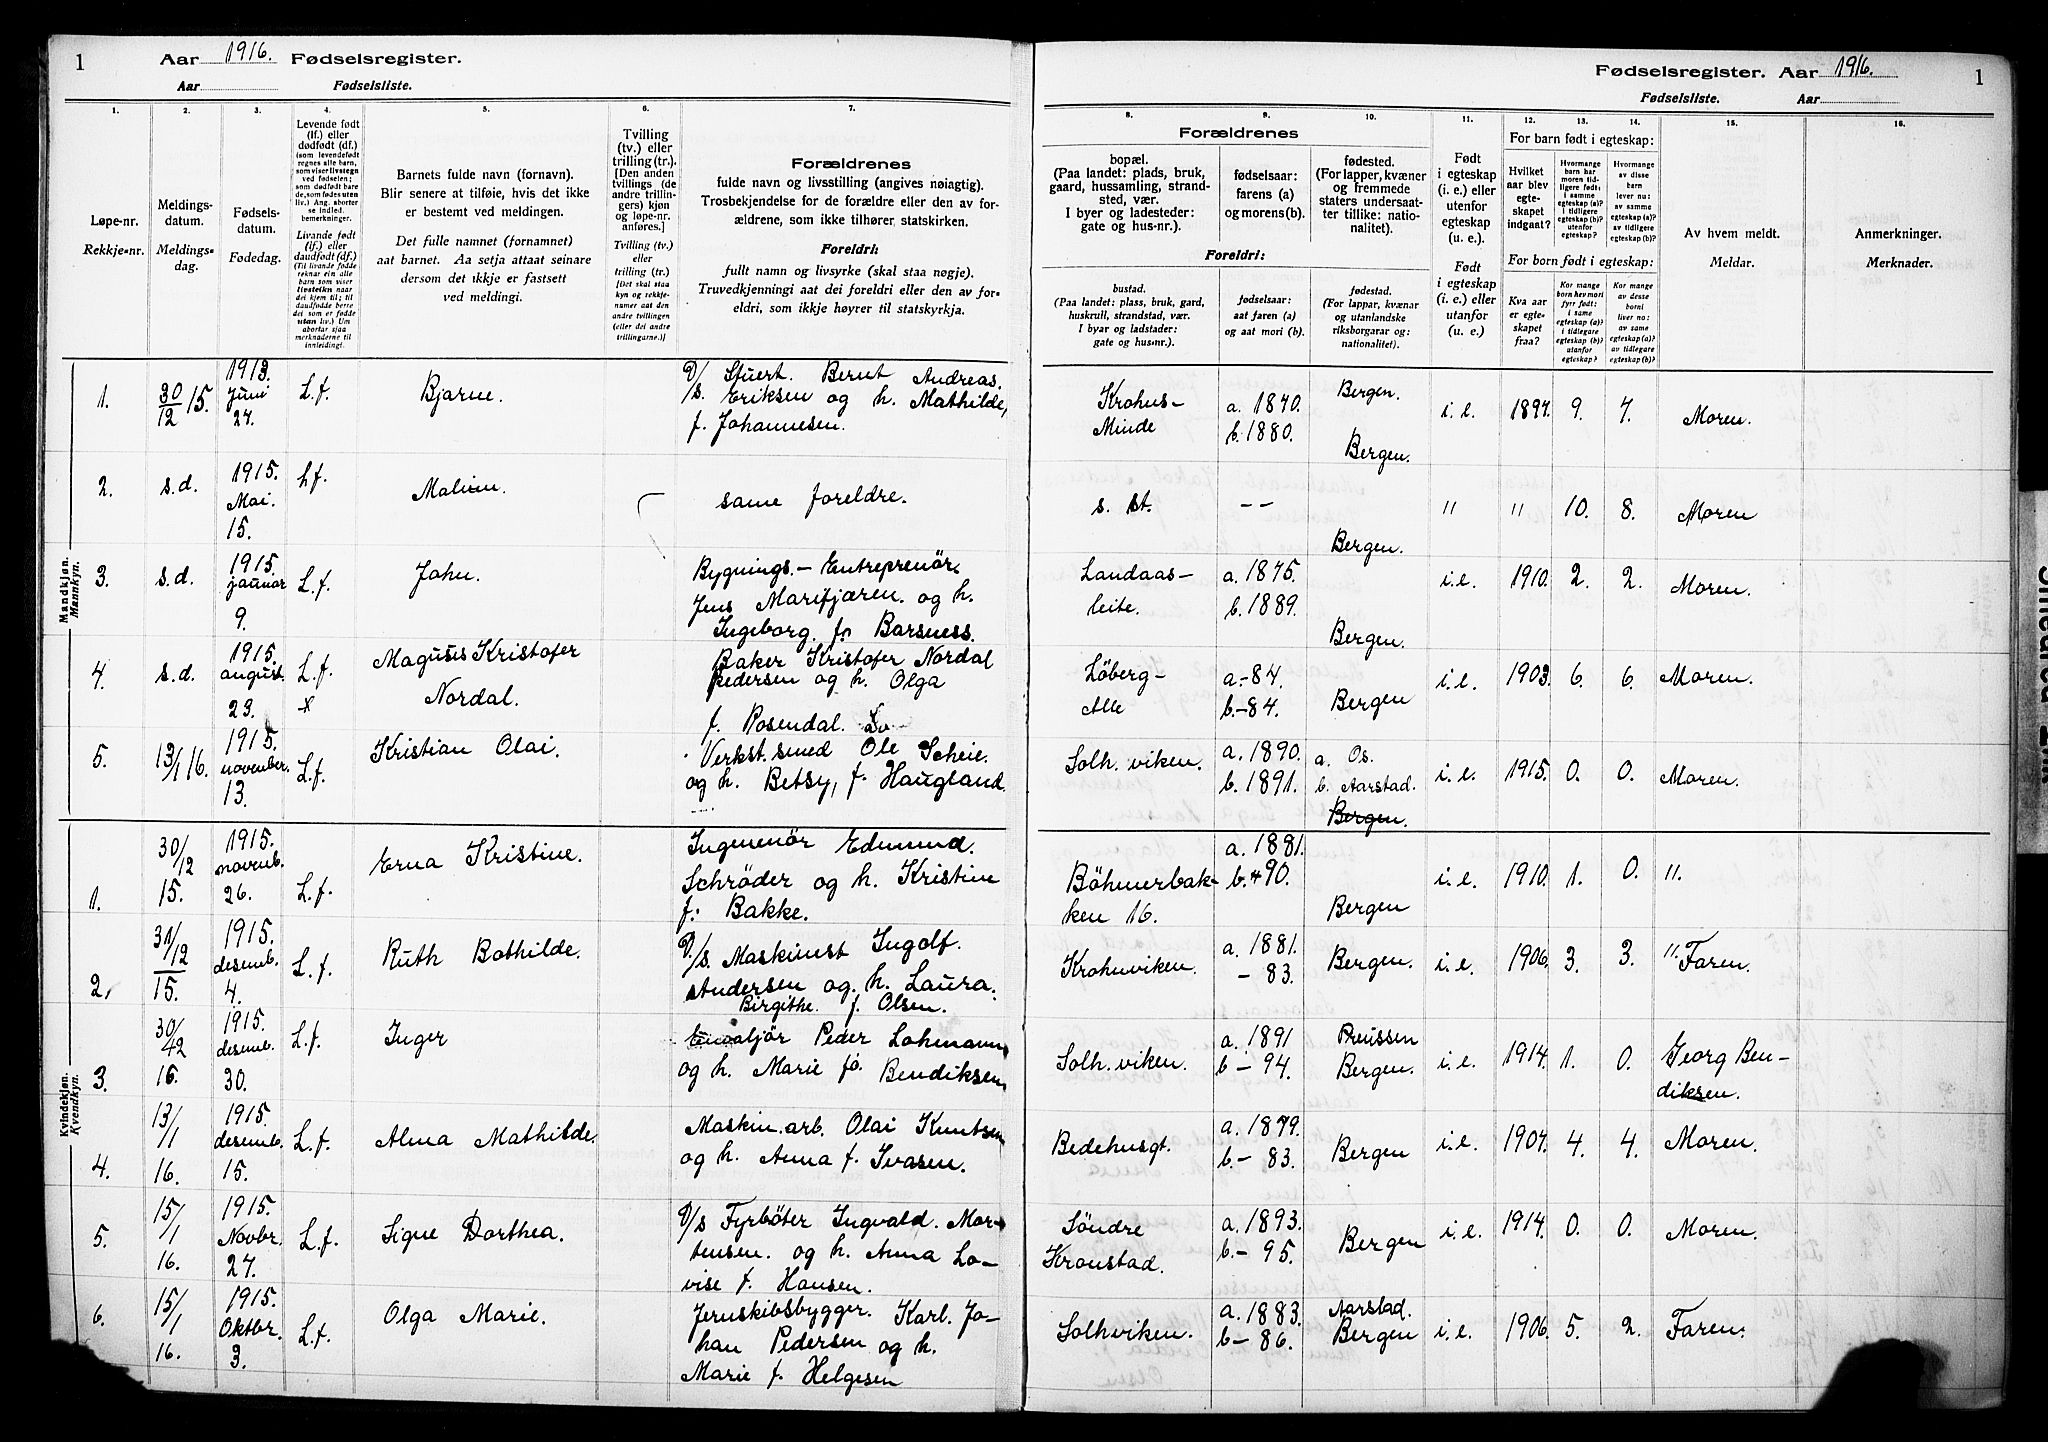 1
Aar 1916. Fødselsregister.
Aar Fødselsliste.
1. 2. 3. 4. 5. 6. 7.
Løpe-nr.
Rekkje-nr.
Meldings-
datum.
Meldings-
dag.
Fødsels-
datum.
Fødedag.
Levende født
(lf.) eller
dødfødt (df.)
(som levendefødt
regnes alle barn,
som viser livstegn
ved fødselen;
som dødfødt bare
de, som fødes uten
liv.) Ang. aborter
se indled.
bemerkninger.
Livande født
(lf.) eller
daudfødt (df.)
(Til livande fødde
reknar ein alle
barn som viser
livsteikn naar
dei kjem til; til
daudfødde berre
dei som er fødde
utan liv.) Um
abortar sjaa
merknaderne til
innleidingi.
Barnets fulde navn (fornavn).
Blir senere at tilføie, hvis det ikke
er bestemt ved meldingen.
Det fulle namnet (fornamnet)
aat barnet. Aa setja attaat seinare
dersom det ikkje er fastsett
ved meldingi.
Tvilling
(tv.) eller
trilling (tr.).
[Den anden
tvillings (de
andre trillin-
gers) kjøn
og løpe-nr.
anføres.]
Tvilling (tv.)
eller
trilling (tr.)
[Det skal staa
kyn og rekkje-
numer aat den
andre tvillingen
(eller dei andre
trillingarne.)]
Forældrenes
fulde navn og livsstilling (angives nøiagtig).
Trosbekjendelse for de forældre eller den av for-
ældrene, som ikke tilhører statskirken.
Foreldri:
fullt namn og livsyrke (skal staa nøgje).
Truvedkjenningi aat dei foreldri eller den av for-
eldri, som ikkje høyrer til statskyrkja.
Mandkjøn.
Mannkyn.
1. 30/12 15. 1913. Juni 27. L.f. Bjarne. D/s. Stuert. Bernt Andreas.
Eriksen og h. Mathilde,
f. Johannesen.
2. s.d. 1915. Mai. 15. Lf. same foreldre.
3. s.d. 1915. januar 9. L.f. John. Bygnings.- Entreprenör.
Jens Marifjæren. og h.
Ingeborg. f. Barsness.
4. s.d. 1915. august. 23. L.f. x Magnus Kristofer
Nordal. Baker Kristofer Nordal
Pedersen og h. Olga
f. Rosendal.
5. 13/1 16. 1915. november. 13. L.f. Kristian Olai. Verkst. smed Ole Scheie.
og h. Betsy, f. Haugland.
Kvindekjøn.
Kvendkyn.
1. 30/12 15. 1915. novemb. 26. L.f. Erna Kristine. Ingeniör Edmund.
Schröder og h. Kristine
f. Bakke.
2. 31/12 15. 1915. desemb. 4. L.f. Ruth Bothilde. D/s. Maskinist Ingolf.
Andersen og h. Laura.
Birgithe. f. Olsen.
3. 30/12 16. 1915. desemb. 30. L.f. Inger Peder Lohmann
og h. Marie f. Bendiksen
4. 13/1 16. 1915. desemb. 15. L.f. Alma Mathilde. Maskin. arb. Olai Knutsen
og h. Anna f. Ivasen.
5. 15/1 16. 1915. Novbr. 27. L.f. Signe Dorthea. D/s Fyrböter Ingvald. Mor-
tensen. og h. Anna Lo-
vise f. Hansen.
6. 15/1 16. 1915. Oktbr. 3. L.f. Olga Marie. Jernskibsbygger. Karl. Jo-
han Pedersen og h.
Marie f. Helgesen
Fødselsregister. Aar 1916. 1
Fødselsliste. Aar
8. 9. 10. 11. 12. 13. 14. 15. 16.
Forældrenes
bopæl.
(Paa landet: plads, bruk,
gaard, hussamling, strand-
sted, vær.
I byer og ladesteder:
gate og hus-nr.).
fødselsaar:
farens (a)
og morens (b).
fødested.
(For lapper, kvæner
og fremmede
staters undersaat-
ter tillike: natio-
nalitet).
Foreldri:
bustad.
(Paa landet: plass, bruk, gard,
huskrull, strandstad, vær.
I byar og ladstader:
gate og hus-nr.).
fødselsaar:
aat faren (a)
og aat mori (b).
fødestad.
(For lappar, kvænar
og utanlandske
riksborgarar og:
nationalitet).
Født
i egteskap
(i. e.) eller
utenfor
egteskap
(u. e.).
Født
i egteskap
(i. e.) eller
utanfor
(u. e.)
For barn født i egteskap:
Hvilket
aar blev
egte-
skapet
indgaat?
Hvormange
barn har
moren tid-
ligere født:
i samme
egteskap (a)?
i tidligere
egteskap (b)?
utenfor
egteskap?
Hvormange
av disse
barn
lever nu:
av samme
egteskap (a)?
av tidligere
egteskap (b)?
For born født i egteskap:
Kva aar
er egte-
skapet
fraa?
Kor mange
born hev mori
fyrr født:
i same
egteskap (a)?
i tidlegare
egteskap (b)?
utanfor
egteskap?
Kor mange
av desse
borni
liver no:
av same
egteskap (a)?
av tidlegare
egteskap (b)?
Av hvem meldt.
Meldar.
Anmerkninger.
Merknader.
Krohns-
Minde a. 1870.
b. 1880. Bergen.
Bergen. i.e. 1897. 9. 7. Moren.
s. st. -- Bergen. " " 10. 8. Moren
Landaas-
leite. a. 1875.
b. 1889. Bergen. i.e. 1910. 2. 2. Moren.
Löberg-
Alle a.-84.
b.-84. Bergen i.e. 1903. 6. 6. Moren.
Solh. viken. a. 1890.
b. 1891. a. Os.
b. Aarstad.
Bergen. i.e. 1915. 0. 0. Moren.
Böhmerbak-
ken 16. a. 1881.
b. 90. Bergen i.e. 1910. 1. 0. ".
Krohnviken. a. 1881.
- 83. Bergen. i.e. 1906. 3. 3. " Faren.
Solh. viken. a. 1891
b - 94. Preussen
Bergen. i.e. 1914. 1. 0. Georg Ben-
diksen.
Bedehusgt. a. 1879.
b.- 83. Bergen i.e. 1907. 4. 4. Moren.
Söndre
Kronstad. a. 1893.
b.- 95. Bergen i.e. 1914. 0. 0. Moren.
Solhviken. a. 1883.
b - 86. Aarstad.
Bergen i.e. 1906. 5. 2. Faren.